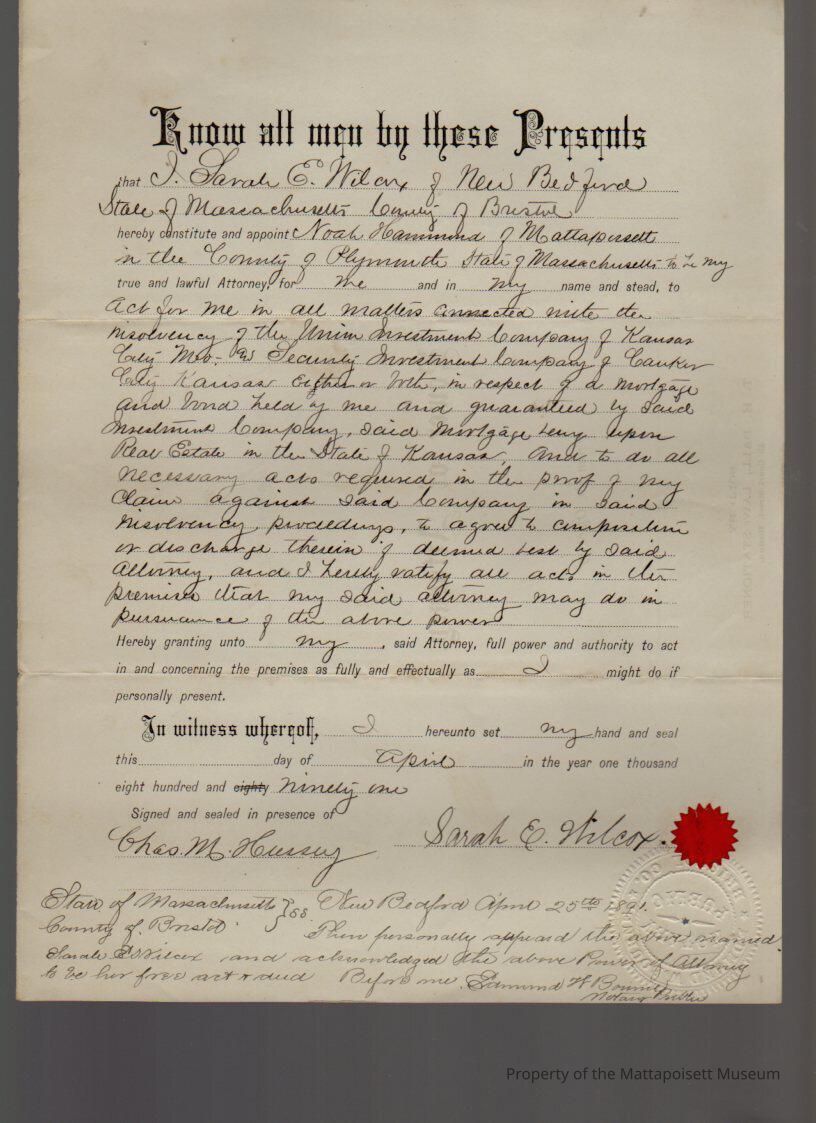 Know all men by these Presents
that I. Sarah E. Wilcox of New Bedford
State of Massachusetts County of Bristol
hereby constitute and appoint Noah Hammond of Mattapoisett
in the County of Plymouth State of Massachusetts to be my
true and lawful Attorney, for me and in my name and stead, to
act for me in all matters connected with the
insolvency of the Union Investment Company of Kansas
City Mo- Security Investment Company of Cawker
City Kansas either or both, in respect of a mortgage
and bond held by me and guaranteed by said
Investment Company, said mortgage being upon
Real Estate in the State of Kansas, and to do all
necessary acts required in the proof of my
claim against said Company in said
insolvency proceedings, to agree to composition
or discharge therein if deemed best by said
attorney, and I hereby ratify all acts in the
premises that my said attorney may do in
pursuance of the above power
Hereby granting unto my, said Attorney, full power and authority to act
in and concerning the premises as fully and effectually as I might do if
personally present.
In witness whereof, I hereunto set my hand and seal
this day of April in the year one thousand
eight hundred and eighty ninety one
Signed and sealed in presence of
Chas. M. Hussey Sarah E. Wilcox.
State of Massachusetts } ss. New Bedford April 25th 1891.
County of Bristol. Then personally appeared the above named
Sarah E Wilcox and acknowledged the above Power of Attorney
to be her free act & deed Before me. Edmund H
Notary Public
Property of the Mattapoisett Museum